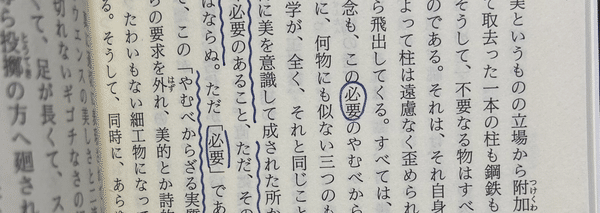 美というものの立場から附加
て取去った一本の柱も鋼鉄も
そうして、不要なる物はすべ
のである。それは、それ自身
よって柱は遠慮なく歪められ
ら飛出してくる。すべては、
念も、この必要のやむべから
に、何物にも似ない三つのも
学が、全く、それと同じこと
に美を意識して成された所か
必要のあること、ただ、その
はならぬ。ただ「必要」であ
て、この「やむべからざる実質
らの要求を外れ、美的とか詩的
たわいもない細工物になって
る。そうして、同時に、あら
切れないギゴチなさの
くて、足が長くて、ス
ら投擲の方へ廻され